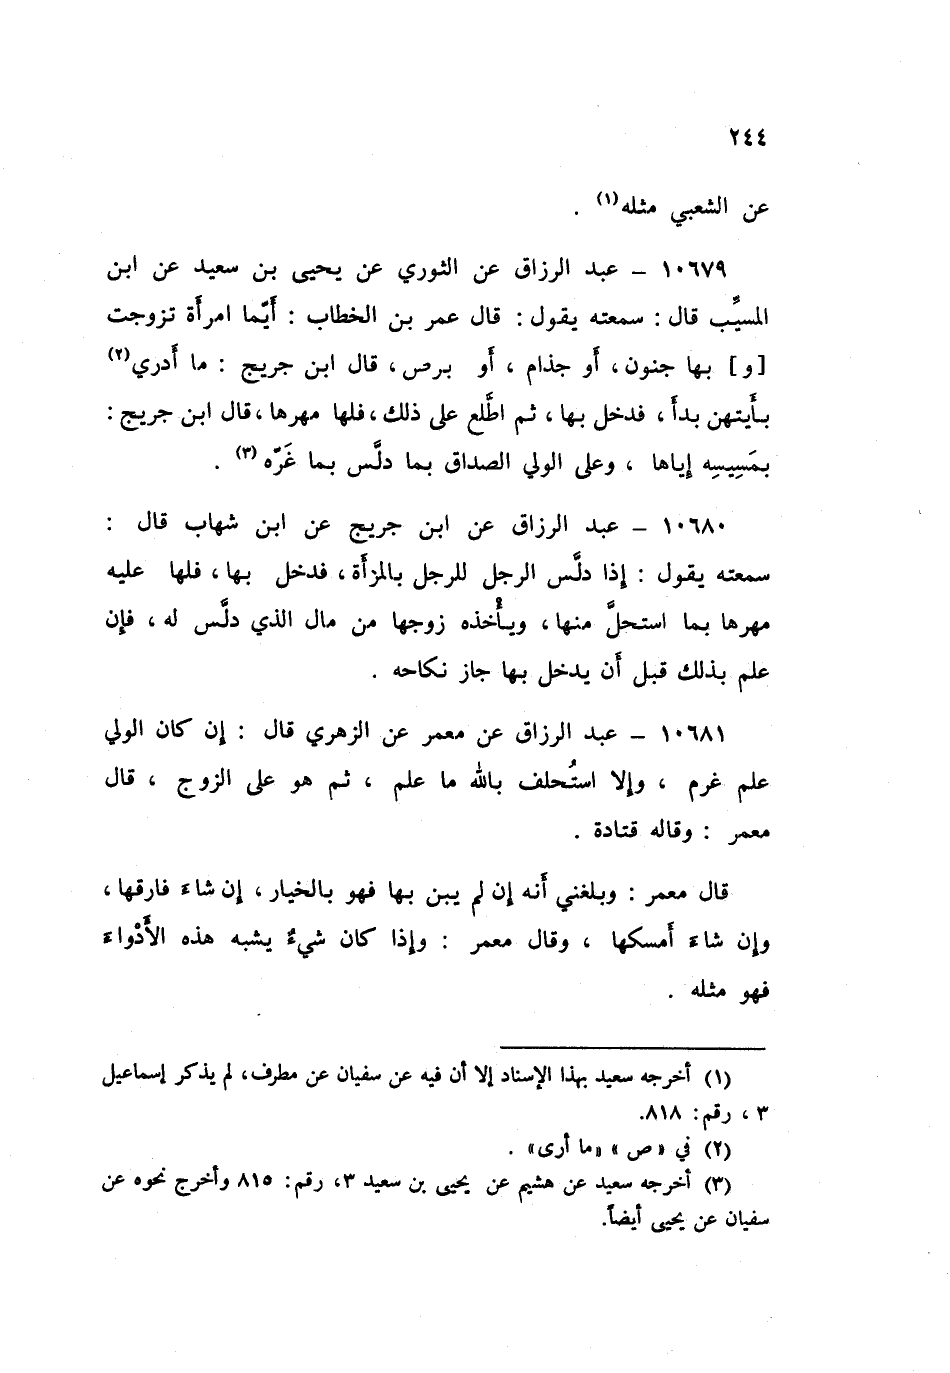 ٢٤٤
عن الشعبي مثله(١) .
١٠٦٧٩ – عبد الرزاق عن الثوري عن يحيى بن سعيد عن ابن
المسيَّب قال : سمعته يقول : قال عمر بن الخطاب : أَيّما امرأَة تزوجت
[و] بها جنون، أَو جذام ، أَو برص، قال ابن جريج : ما أَدري(٢)
بأَيتهن بدأَ ، فدخل بها، ثم اطَّلع على ذلك، فلها مهرها، قال ابن جريج :
بمَسِيسِه إياها ، وعلى الولي الصداق بما دلَّس بما غَرّه(٣) .
١٠٦٨٠ – عبد الرزاق عن ابن جريج عن ابن شهاب قال :
سمعته يقول : إذا دلَّس الرجل للرجل بالمرأَة، فدخل بها، فلها عليه
مهرها بما استحلَّ منها، ويأْخذه زوجها من مال الذي دلَّس له ، فإن
علم بذلك قبل أَن يدخل بها جاز نكاحه .
١٠٦٨١ – عبد الرزاق عن معمر عن الزهري قال : إن كان الولي
علم غرم ، وإلا استُحلف بالله ما علم ، ثم هو على الزوج ، قال
معمر : وقاله قتادة .
قال معمر : وبلغني أَنه إن لم يبن بها فهو بالخيار، إن شاءَ فارقها ،
وإن شاءَ أَمسكها ، وقال معمر : وإذا كان شيءٌ يشبه هذه الأَدْواءَ
فهو مثله .
(١) أخرجه سعيد بهذا الإسناد إلا أن فيه عن سفيان عن مطرف، لم يذكر إسماعيل
٣ ، رقم: ٨١٨.
(٢) في « ص » «ما أرى» .
(٣) أخرجه سعيد عن هشيم عن يحيى بن سعيد ٣، رقم: ٨١٥ وأخرج نحوه عن
سفيان عن يحيى أيضاً.